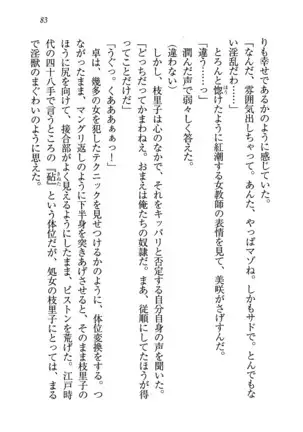 83
りも幸せであるかのように感じていた。
「なんだ、雰囲気出しちゃって。あんた、やっぱマゾね。しかもサドで。なんてすご
い淫乱だわ……」
とろんと惚けたように紅潮する女教師の表情を見て、美咲がさげすんだ。
「違う……っ」
潤んだ声で弱々しく答えた。
(違わない)
しかし、枝里子は心のなかで、それをキッパリと否定する自分自身の声を聞いた。
「どっちだってかまわねぇ。おまえは俺たちの奴隷だ。まあ、従順にしてたほうが得
ってことだけだ」
「うぐっ。くああああぁぁっ!」
卓は、幾多の女を犯したテクニックを見せつけるかのように、体位変換をする。つ
ながったまま、マングリ返しのように下半身を突きあげさせると、そのまま枝里子の
ほうに尻を向けて、接合部がよく見えるようにしたまま、ピストンを荒げた。江戸時
代の四十八手で言うところの『砧』という体位だが、処女の枝里子にとっては、まる
で淫獣のまぐわいのように思えた。